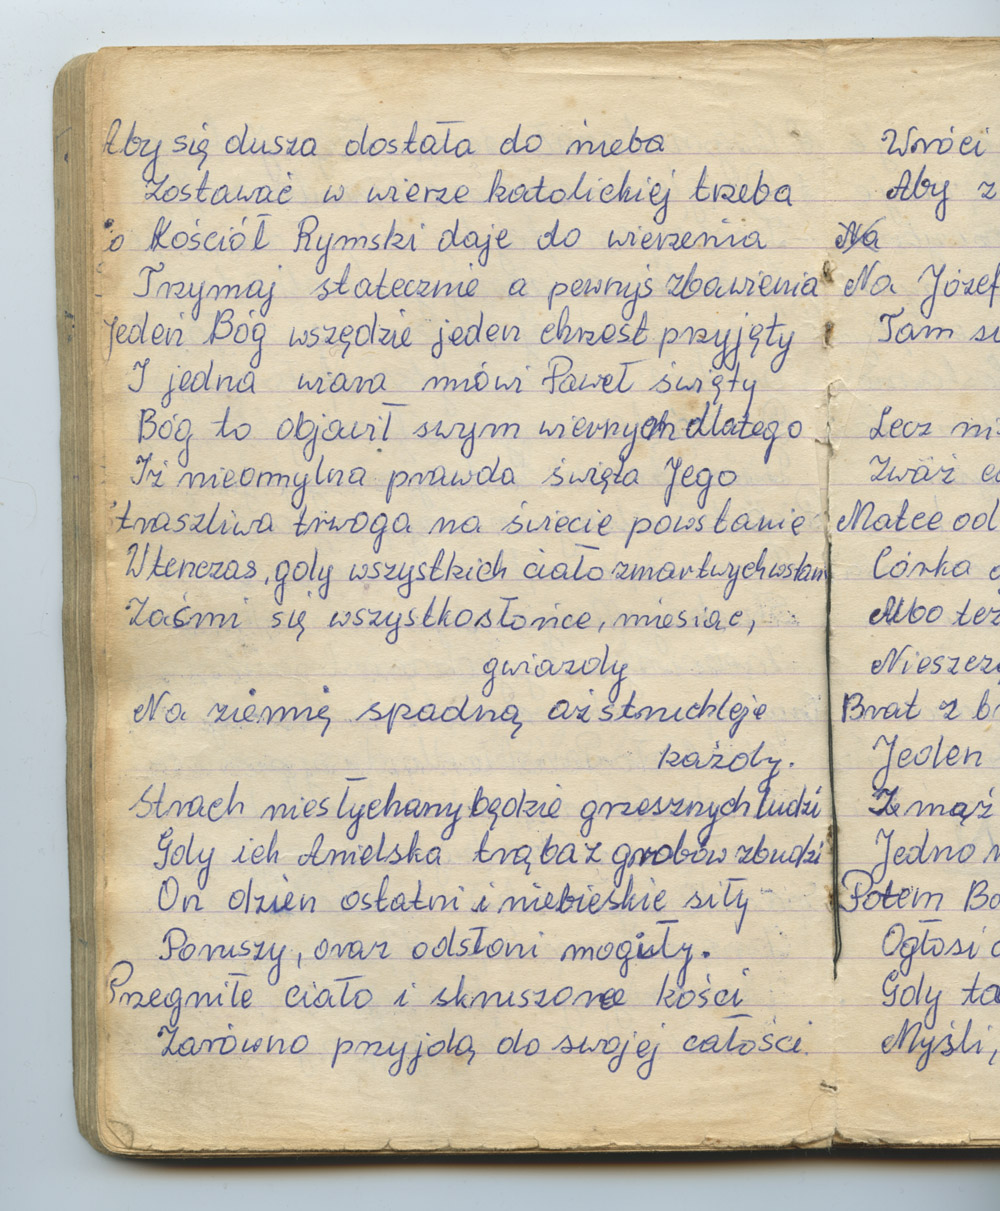 Aby się dusza dostała do nieba
Zostawać w wierze katolickiej trzeba
o Kościół Rymski daje do wierzenia
Trzymaj statecznie a pewnyś zbawienia
Jeden Bóg wszędzie jeden chrzest przyjęty
I jedna wiara mówi Paweł święty
Bóg to objawił swym wiernych dlatego
Iż nieomylna prawda święta Jego
traszliwa trwoga na świecie powstanie
Wtenczas, gdy wszystkich ciało zmartwychwstan
Zaćmi się wszystko słońce, miesiąc,
gwiazdy
Na ziemię spadną aż struchleje
każdy.
Strach niesłychany będzie grzesznych ludzi
Gdy ich Anielska trąba z grobów zbudzi
On dzień ostatni i niebieskie siły
Poruszy, oraz odsłoni mogiły.
Przegniłe ciało i skruszone kości
Zarówno przyjdą do swojej całości.
Wróci
Aby z
Na
Na Józef
Tam
Lecz
Zważ
Matce od
Córka
Albo też
Brat z
Jeden
Z mąż
Jedno
Potem
Ogłosi
Gdy
Myśli,